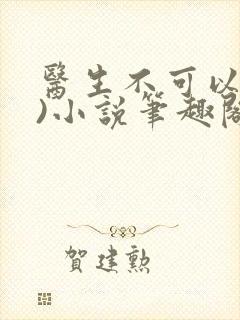 醫生不可以
)小說筆趣閣
賀建勲